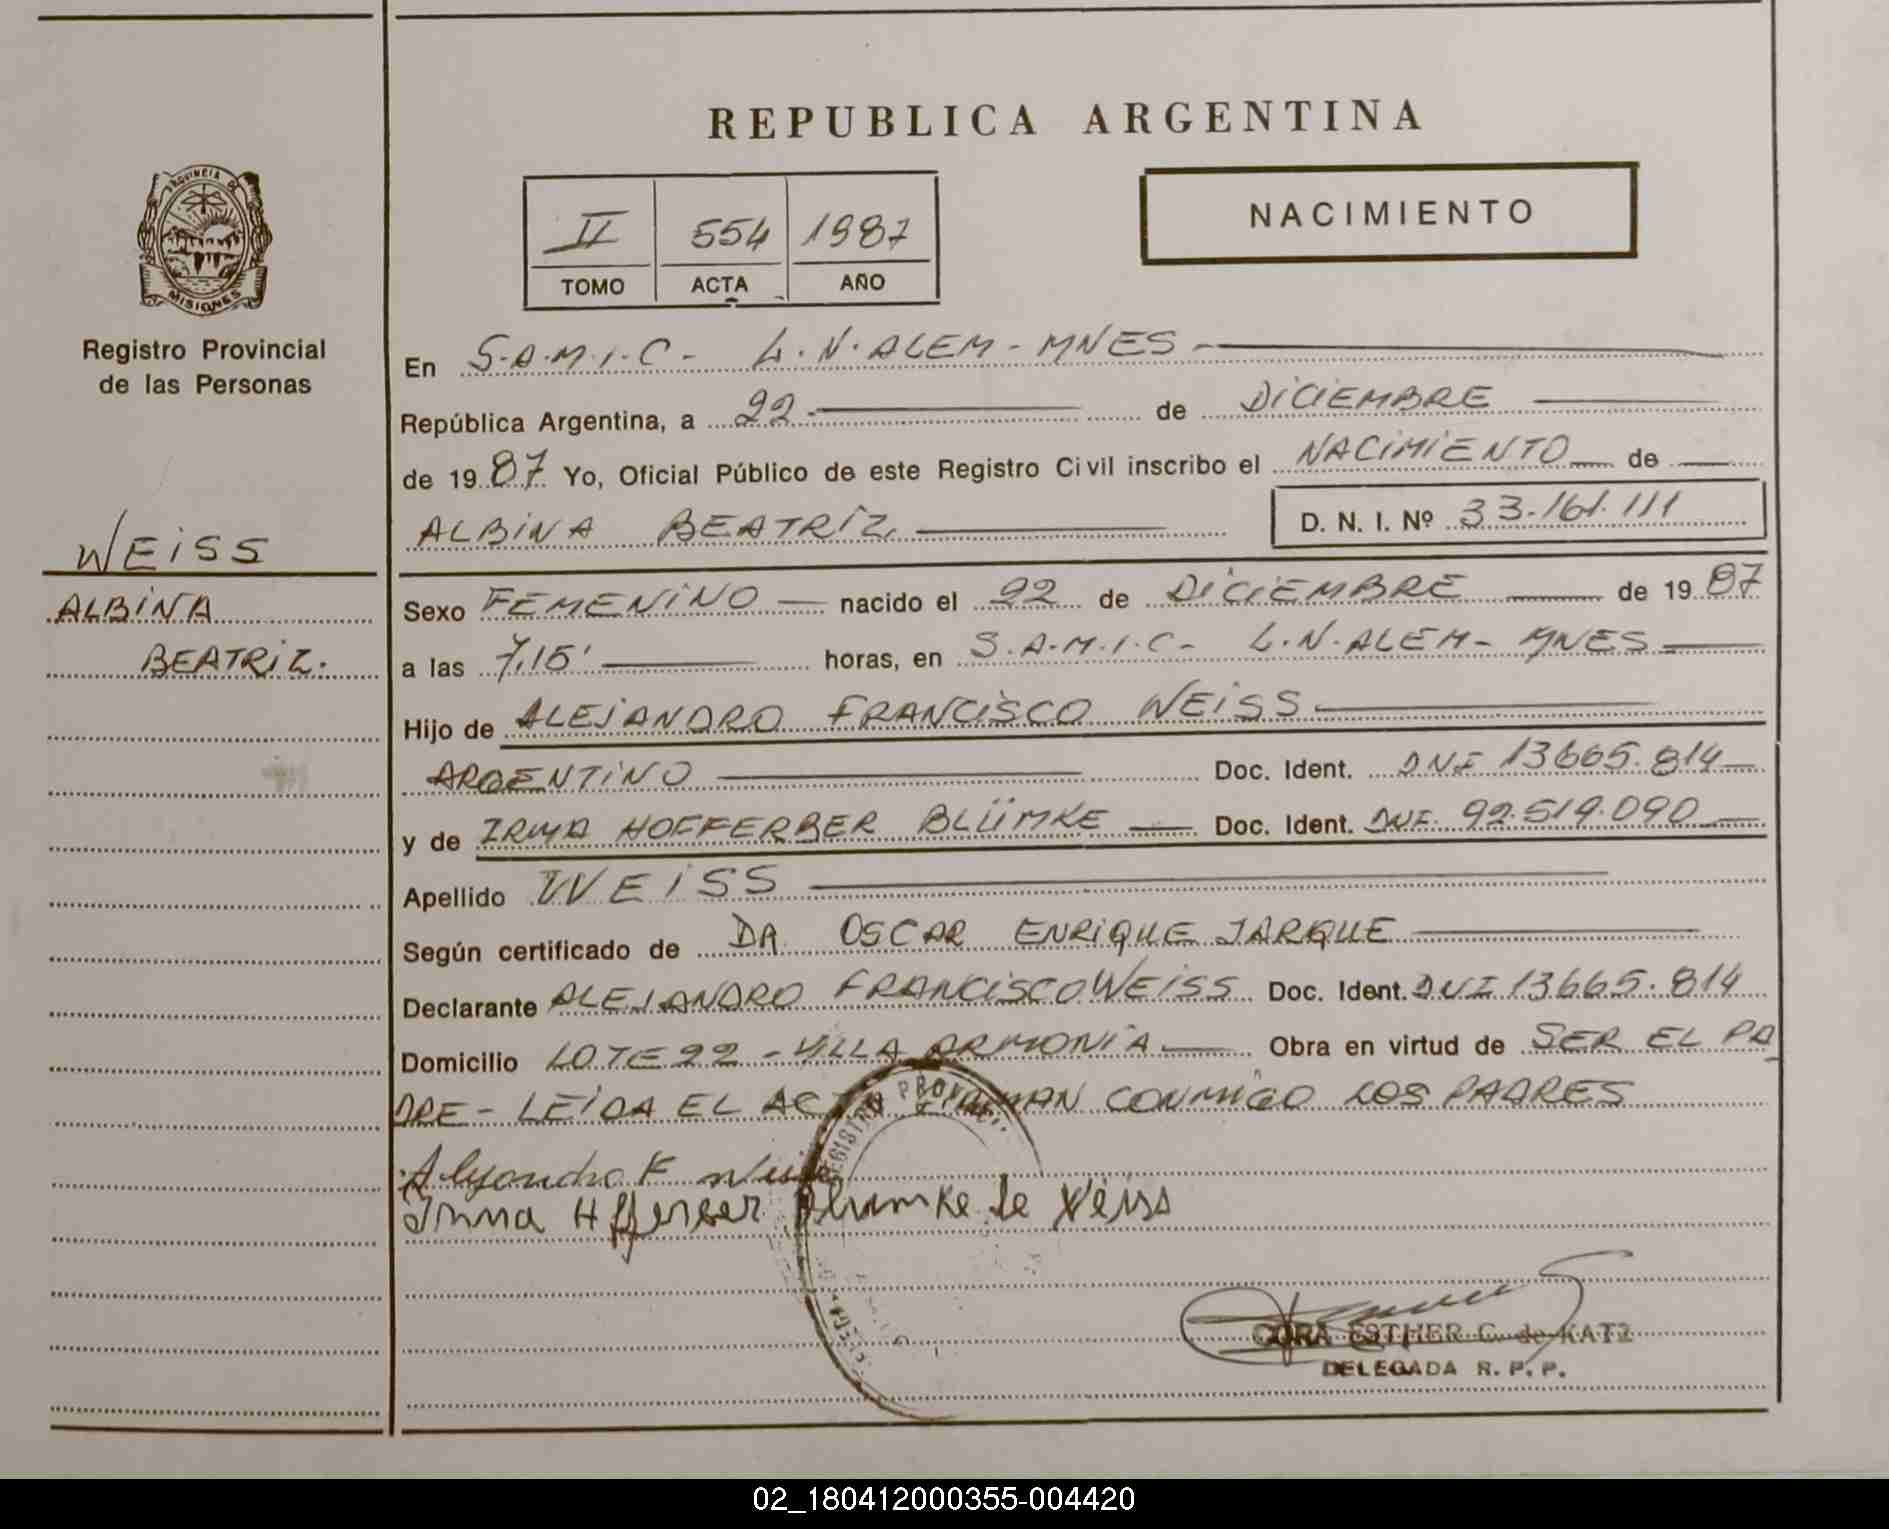 REPUBLICA ARGENTINA
PROVINCIA DE
MISIONES
Registro Provincial
de las Personas
II 554 1987
TOMO ACTA AÑO
NACIMIENTO
En S.A.M.I.C - L.N.ALEM - MNES -
República Argentina, a 22 de DICIEMBRE
de 1987 Yo, Oficial Público de este Registro Civil inscribo el NACIMIENTO de
ALBINA BEATRIZ D. N. I. Nº 33.161.111
WEISS
ALBINA
BEATRIZ.
Sexo FEMENINO nacido el 22 de DICIEMBRE de 1987
a las 7,15' horas, en S.A.M.I.C - L.N.ALEM - MNES
Hijo de ALEJANDRO FRANCISCO WEISS
ARGENTINO Doc. Ident. DNI 13665.814
y de IRMA HOFFERBER BLÜMKE Doc. Ident. DNI. 92.519.090
Apellido WEISS
Según certificado de DR OSCAR ENRIQUE JARQUE
Declarante ALEJANDRO FRANCISCO WEISS Doc. Ident. DNI 13665.814
Domicilio LOTE 22 - VILLA ARMONIA Obra en virtud de SER EL PA
DRE - LEIDA EL ACTA FIRMAN CONMIGO LOS PADRES
REGISTRO PROV
Alejandro F Weiss
Irma Hfferber Blumke de Weiss
CORA ESTHER C. de KATZ
DELEGADA R. P. P.
02_180412000355-004420